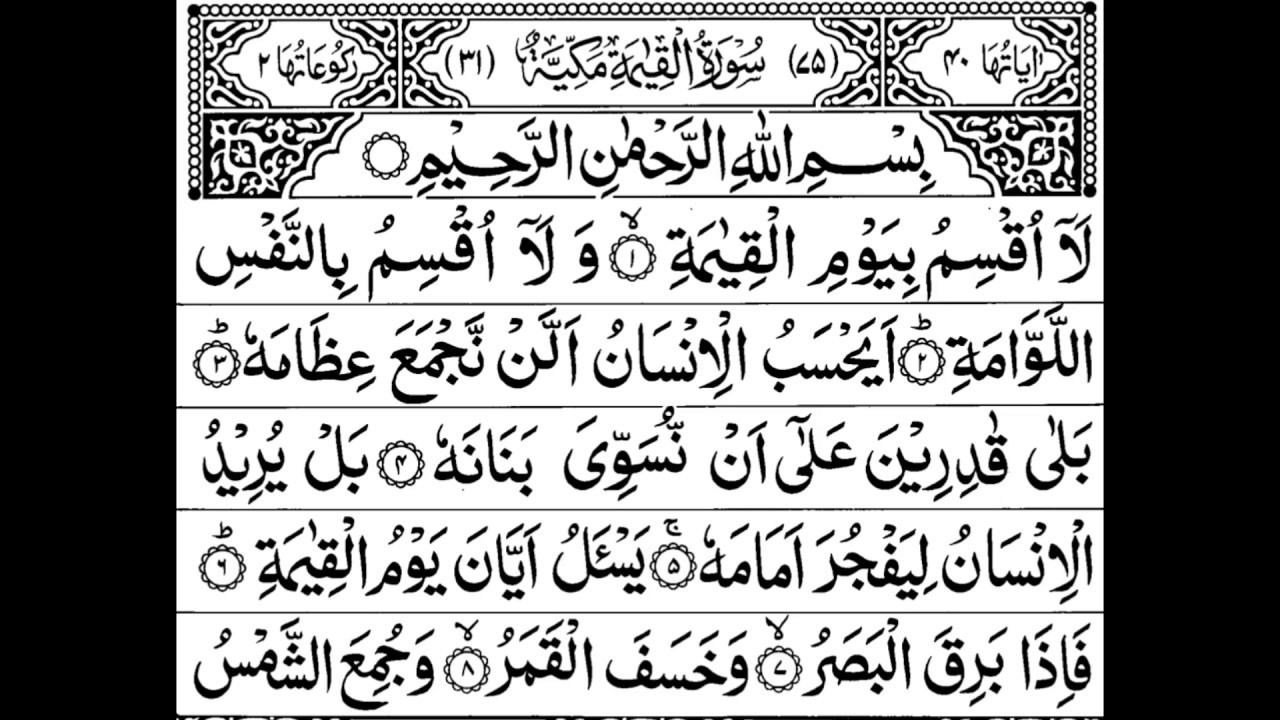 اٰيَاتُهَا ۴۰ (۷۵) سُوْرَةُ الْقِيٰمَةِ مَكِّيَّةٌ (۳۱) رُكُوْعَاتُهَا ۲
بِسْمِ اللّٰهِ الرَّحْمٰنِ الرَّحِيْمِ
لَاۤ اُقْسِمُ بِيَوْمِ الْقِيٰمَةِ ۙ‏﴿۱﴾ وَ لَاۤ اُقْسِمُ بِالنَّفْسِ
اللَّوَّامَةِ ؕ‏﴿۲﴾ اَيَحْسَبُ الْاِنْسَانُ اَلَّنْ نَّجْمَعَ عِظَامَهٗ ؕ‏﴿۳﴾
بَلٰى قٰدِرِيْنَ عَلٰۤى اَنْ نُّسَوِّىَ بَنَانَهٗ ﴿۴﴾ بَلْ يُرِيْدُ
الْاِنْسَانُ لِيَفْجُرَ اَمَامَهٗ ۚ‏﴿۵﴾ يَسْئَلُ اَيَّانَ يَوْمُ الْقِيٰمَةِ ؕ‏﴿۶﴾
فَاِذَا بَرِقَ الْبَصَرُ ۙ‏﴿۷﴾ وَخَسَفَ الْقَمَرُ ۙ‏﴿۸﴾ وَجُمِعَ الشَّمْسُ